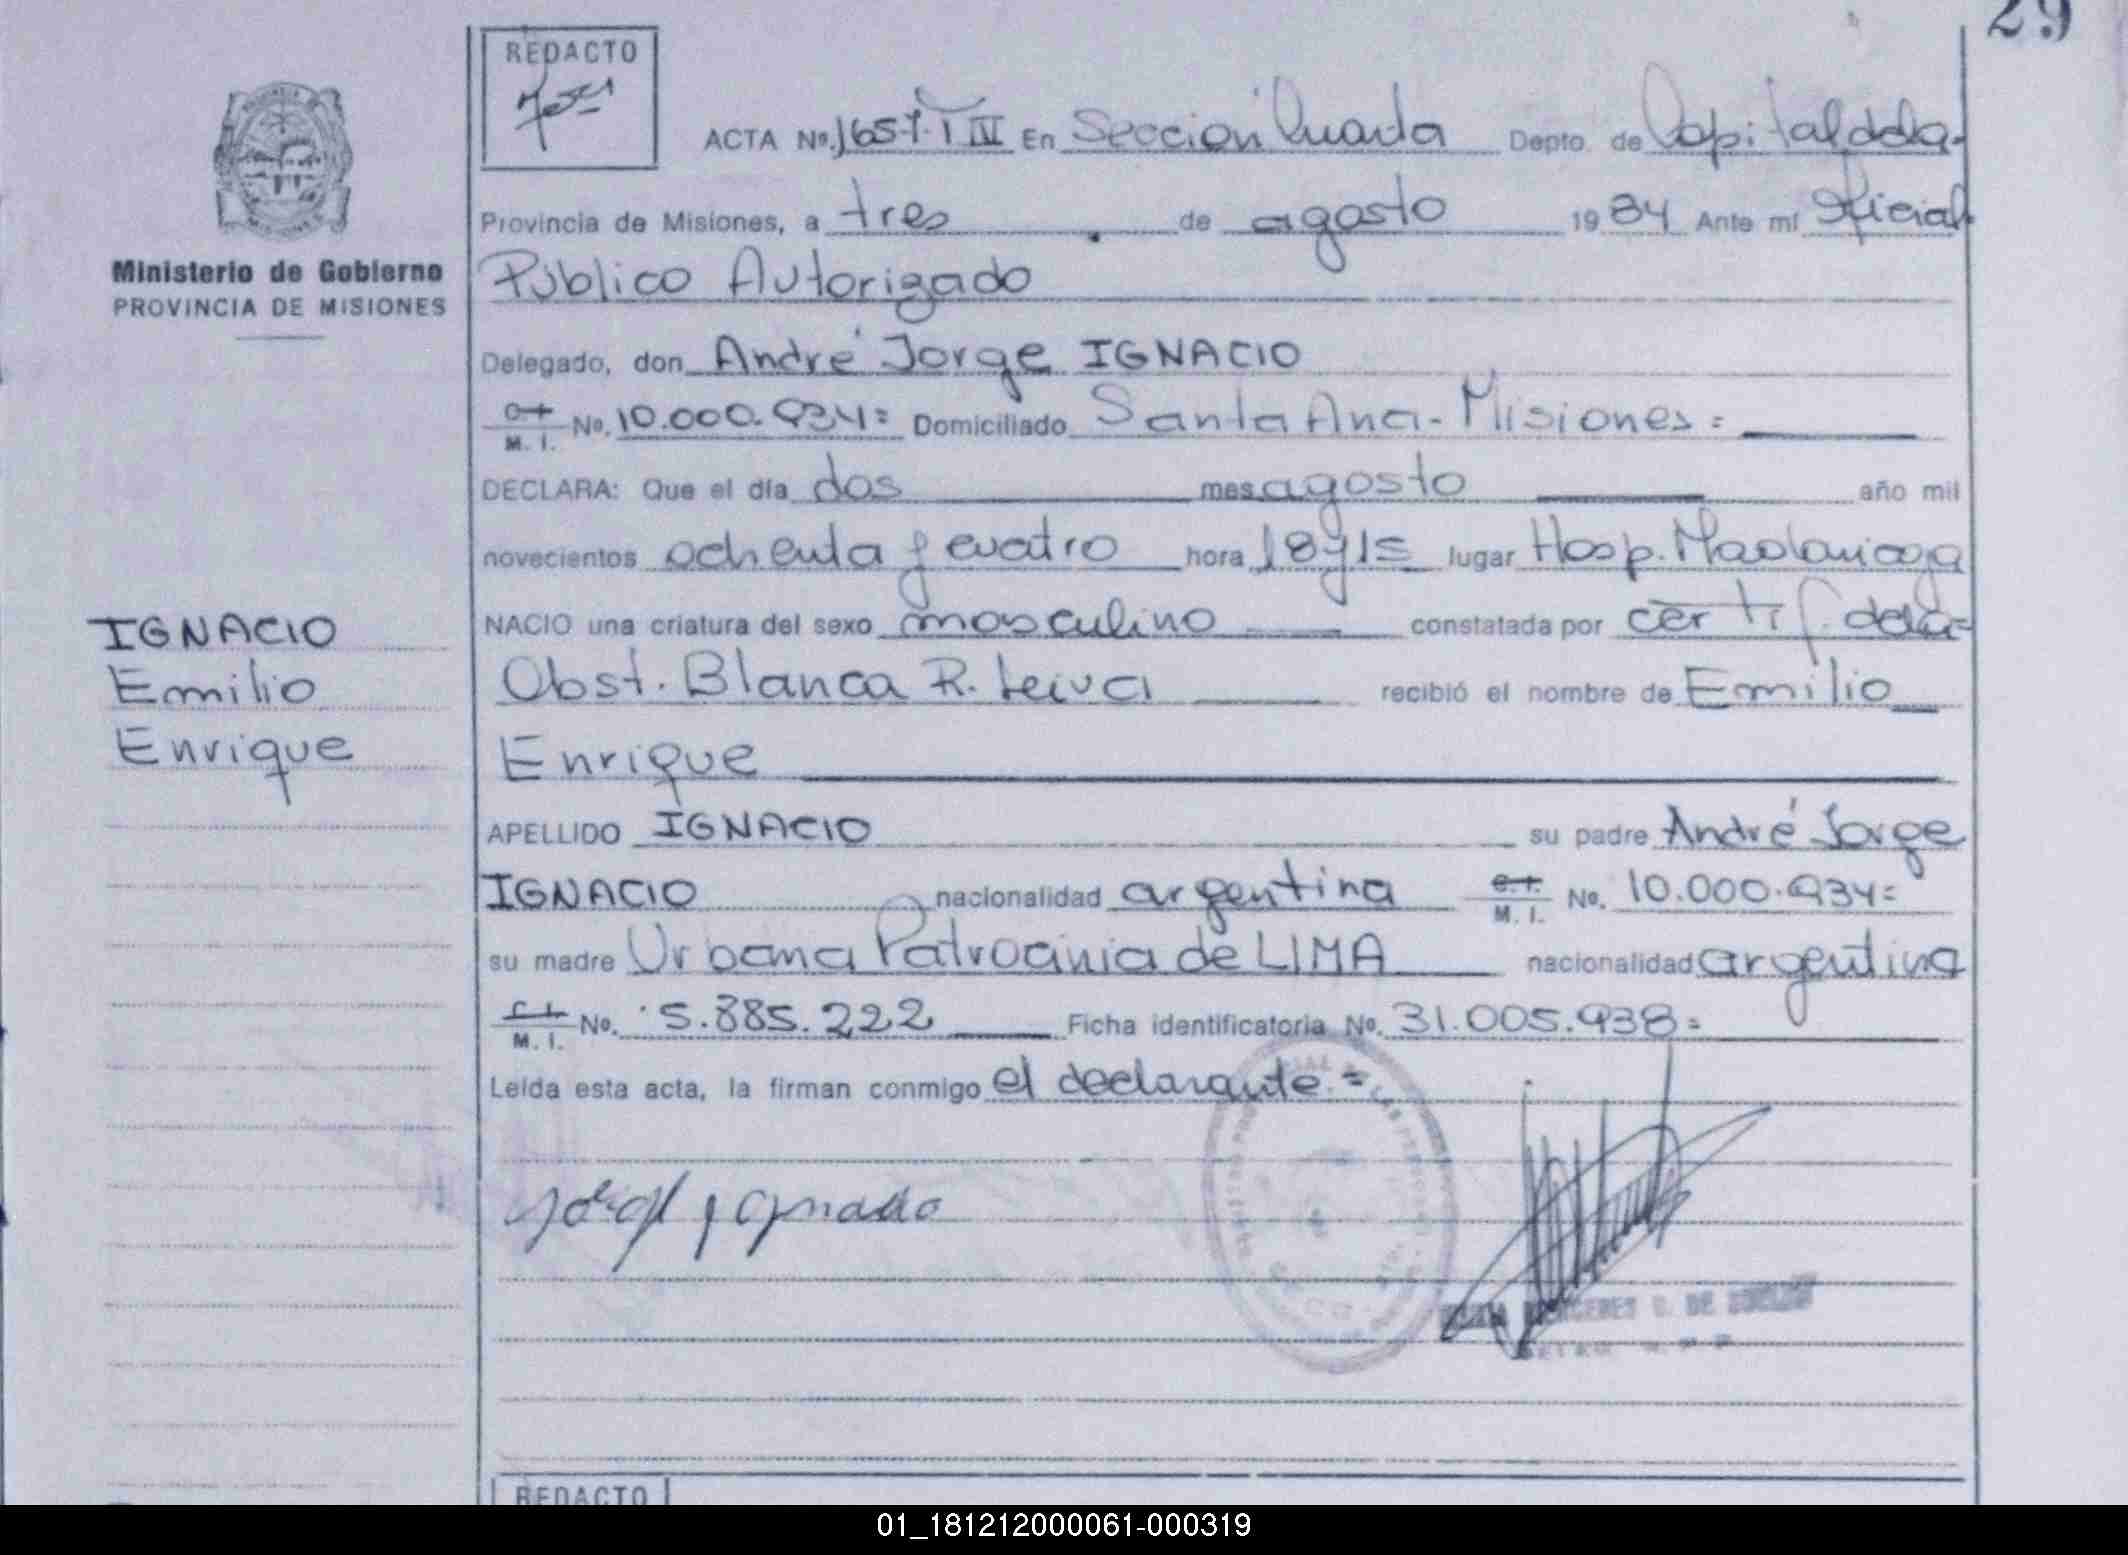 29
REDACTO
ACTA No. 1657 T IV En Sección Cuarta Depto de Capital de la
Provincia de Misiones, a tres de agosto 1984 Ante mí Oficial
Ministerio de Gobierno
PROVINCIA DE MISIONES
Público Autorizado
Delegado, don André Jorge IGNACIO
C.I. M. I. No. 10.000.934= Domiciliado Santa Ana - Misiones =
DECLARA: Que el día dos mes agosto año mil
novecientos ochenta y cuatro hora 18 y 15 lugar Hosp. Madariaga
NACIO una criatura del sexo masculino constatada por certif. de la
Obst. Blanca R. Leiva recibió el nombre de Emilio
Enrique
IGNACIO
Emilio
Enrique
APELLIDO IGNACIO su padre André Jorge
IGNACIO nacionalidad argentina C.I. M. I. No. 10.000.934=
su madre Urbana Patrocinia de LIMA nacionalidad argentina
C.I. M. I. No. 5.885.222 Ficha identificatoria No. 31.005.938=
Leída esta acta, la firman conmigo el declarante. =
REDACTO
01_181212000061-000319